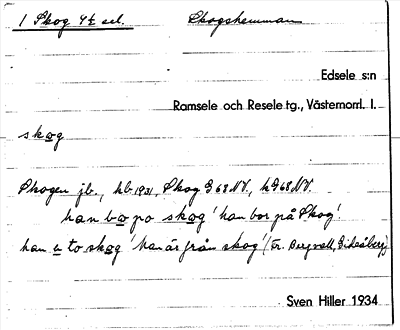 1 Skog 4:1 sel. Skogshemman
Edsele s:n
Ramsele och Resele tg., Västernorrl. l.
skog
Skogen jb., hb. 1931, Skog G 68 NV, h G 68 NV.
han bo po skog 'han bor på Skog'.
han e to skog 'han är från skog' (Er. Bergvall,
Sven Hiller 1934